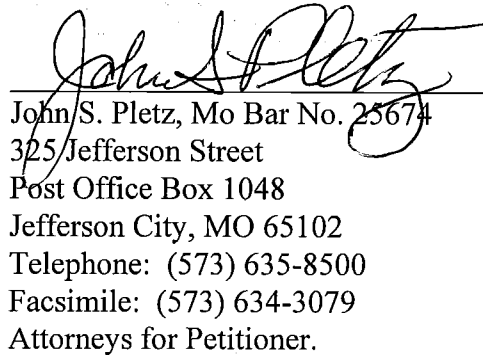 John S Pletz
John S. Pletz, Mo Bar No. 25674
325 Jefferson Street
Post Office Box 1048
Jefferson City, MO 65102
Telephone: (573) 635-8500
Facsimile: (573) 634-3079
Attorneys for Petitioner.